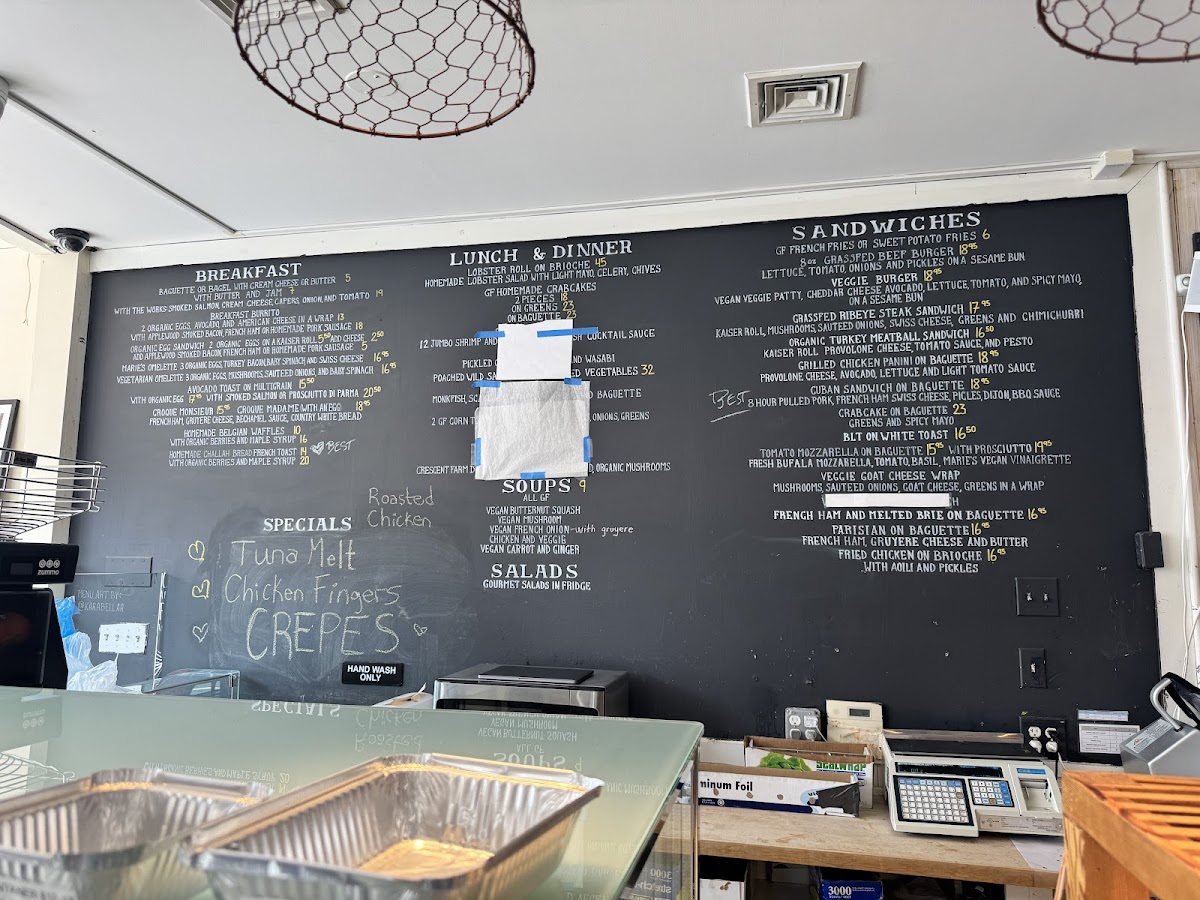 BREAKFAST
BAGUETTE OR BAGEL WITH CREAM CHEESE OR BUTTER 5
WITH BUTTER AND JAM 7
WITH THE WORKS-SMOKED SALMON, CREAM CHEESE, CAPERS, ONION, AND TOMATO 19
BREAKFAST BURRITO
2 ORGANIC EGGS, AVOCADO, AND AMERICAN CHEESE IN A WRAP 13
WITH APPLEWOOD SMOKED BACON, FRENCH HAM OR HOMEMADE PORK SAUSAGE 18
ORGANIC EGG SANDWICH 2 ORGANIC EGGS ON A KAISER ROLL 5.50 ADD CHEESE 2.50
ADD APPLEWOOD SMOKED BACON, FRENCH HAM OR HOMEMADE PORK SAUSAGE 5
MARIE'S OMELETTE 3 ORGANIC EGGS, TURKEY BACON, BABY SPINACH AND SWISS CHEESE 16.95
VEGETARIAN OMELETTE 3 ORGANIC EGGS, MUSHROOMS, SAUTEED ONIONS, AND BABY SPINACH 16.95
AVOCADO TOAST ON MULTIGRAIN 15.50
WITH ORGANIC EGG 17.95 WITH SMOKED SALMON OR PROSCIUTTO DI PARMA 20.50
CROQUE MONSIEUR 15.95 CROQUE MADAME (WITH AN EGG) 18.95
FRENCH HAM, GRUYERE CHEESE, BECHAMEL SAUCE, COUNTRY WHITE BREAD
HOMEMADE BELGIAN WAFFLES 10
WITH ORGANIC BERRIES AND MAPLE SYRUP 16
HOMEMADE CHALLAH BREAD FRENCH TOAST 14
WITH ORGANIC BERRIES AND MAPLE SYRUP 20
BEST
Roasted
Chicken
SPECIALS
Tuna Melt
Chicken Fingers
CREPES
MENU ART BY:
@KARABELLAR
HAND WASH
ONLY
LUNCH & DINNER
LOBSTER ROLL ON BRIOCHE 45
HOMEMADE LOBSTER SALAD WITH LIGHT MAYO, CELERY, CHIVES
GF HOMEMADE CRABCAKES
2 PIECES 18
ON GREENS 23
ON BAGUETTE 23
12 JUMBO SHRIMP AND SH COCKTAIL SAUCE
PICKLED AND WASABI
POACHED WILD SA VEGETABLES 32
MONKFISH, SC BAGUETTE
2 GF CORN T ONIONS, GREENS
CRESCENT FARM D ORGANIC MUSHROOMS
SOUPS 9
ALL GF
VEGAN BUTTERNUT SQUASH
VEGAN MUSHROOM
VEGAN FRENCH ONION-with gruyere
CHICKEN AND VEGGIE
VEGAN CARROT AND GINGER
SALADS
GOURMET SALADS IN FRIDGE
SANDWICHES
GF FRENCH FRIES OR SWEET POTATO FRIES 6
8oz GRASSFED BEEF BURGER 18.95
LETTUCE, TOMATO, ONIONS AND PICKLES ON A SESAME BUN
VEGGIE BURGER 18.95
VEGAN VEGGIE PATTY, CHEDDAR CHEESE AVOCADO, LETTUCE, TOMATO, AND SPICY MAYO,
ON A SESAME BUN
GRASSFED RIBEYE STEAK SANDWICH 17.95
KAISER ROLL, MUSHROOMS, SAUTEED ONIONS, SWISS CHEESE, GREENS AND CHIMICHURRI
ORGANIC TURKEY MEATBALL SANDWICH 16.50
KAISER ROLL PROVOLONE CHEESE, TOMATO SAUCE, AND PESTO
GRILLED CHICKEN PANINI ON BAGUETTE 18.95
PROVOLONE CHEESE, AVOCADO, LETTUCE AND LIGHT TOMATO SAUCE
BEST
CUBAN SANDWICH ON BAGUETTE 18.95
8 HOUR PULLED PORK, FRENCH HAM, SWISS CHEESE, PICLES, DIJON, BBQ SAUCE
CRABCAKE ON BAGUETTE 23
GREENS AND SPICY MAYO
BLT ON WHITE TOAST 16.50
TOMATO MOZZARELLA ON BAGUETTE 15.95 WITH PROSCIUTTO 19.95
FRESH BUFALA MOZZARELLA, TOMATO, BASIL, MARIE'S VEGAN VINAIGRETTE
VEGGIE GOAT CHEESE WRAP
MUSHROOMS, SAUTEED ONIONS, GOAT CHEESE, GREENS IN A WRAP
H
FRENCH HAM AND MELTED BRIE ON BAGUETTE 16.95
PARISIAN ON BAGUETTE 16.95
FRENCH HAM, GRUYERE CHEESE AND BUTTER
FRIED CHICKEN ON BRIOCHE 16.95
WITH AOILI AND PICKLES
zummo
minum Foil
3000